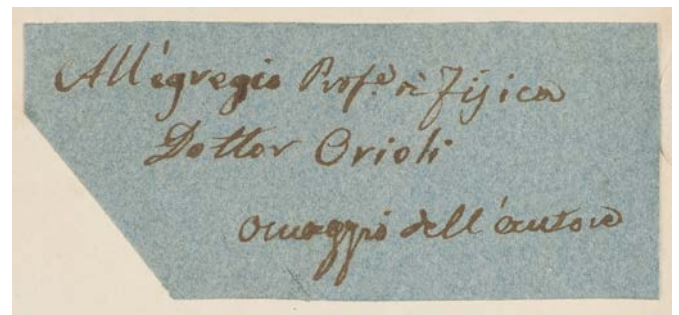 All'egregio Prof.e di Fisica
Dottor Orioli
omaggio dell'autore